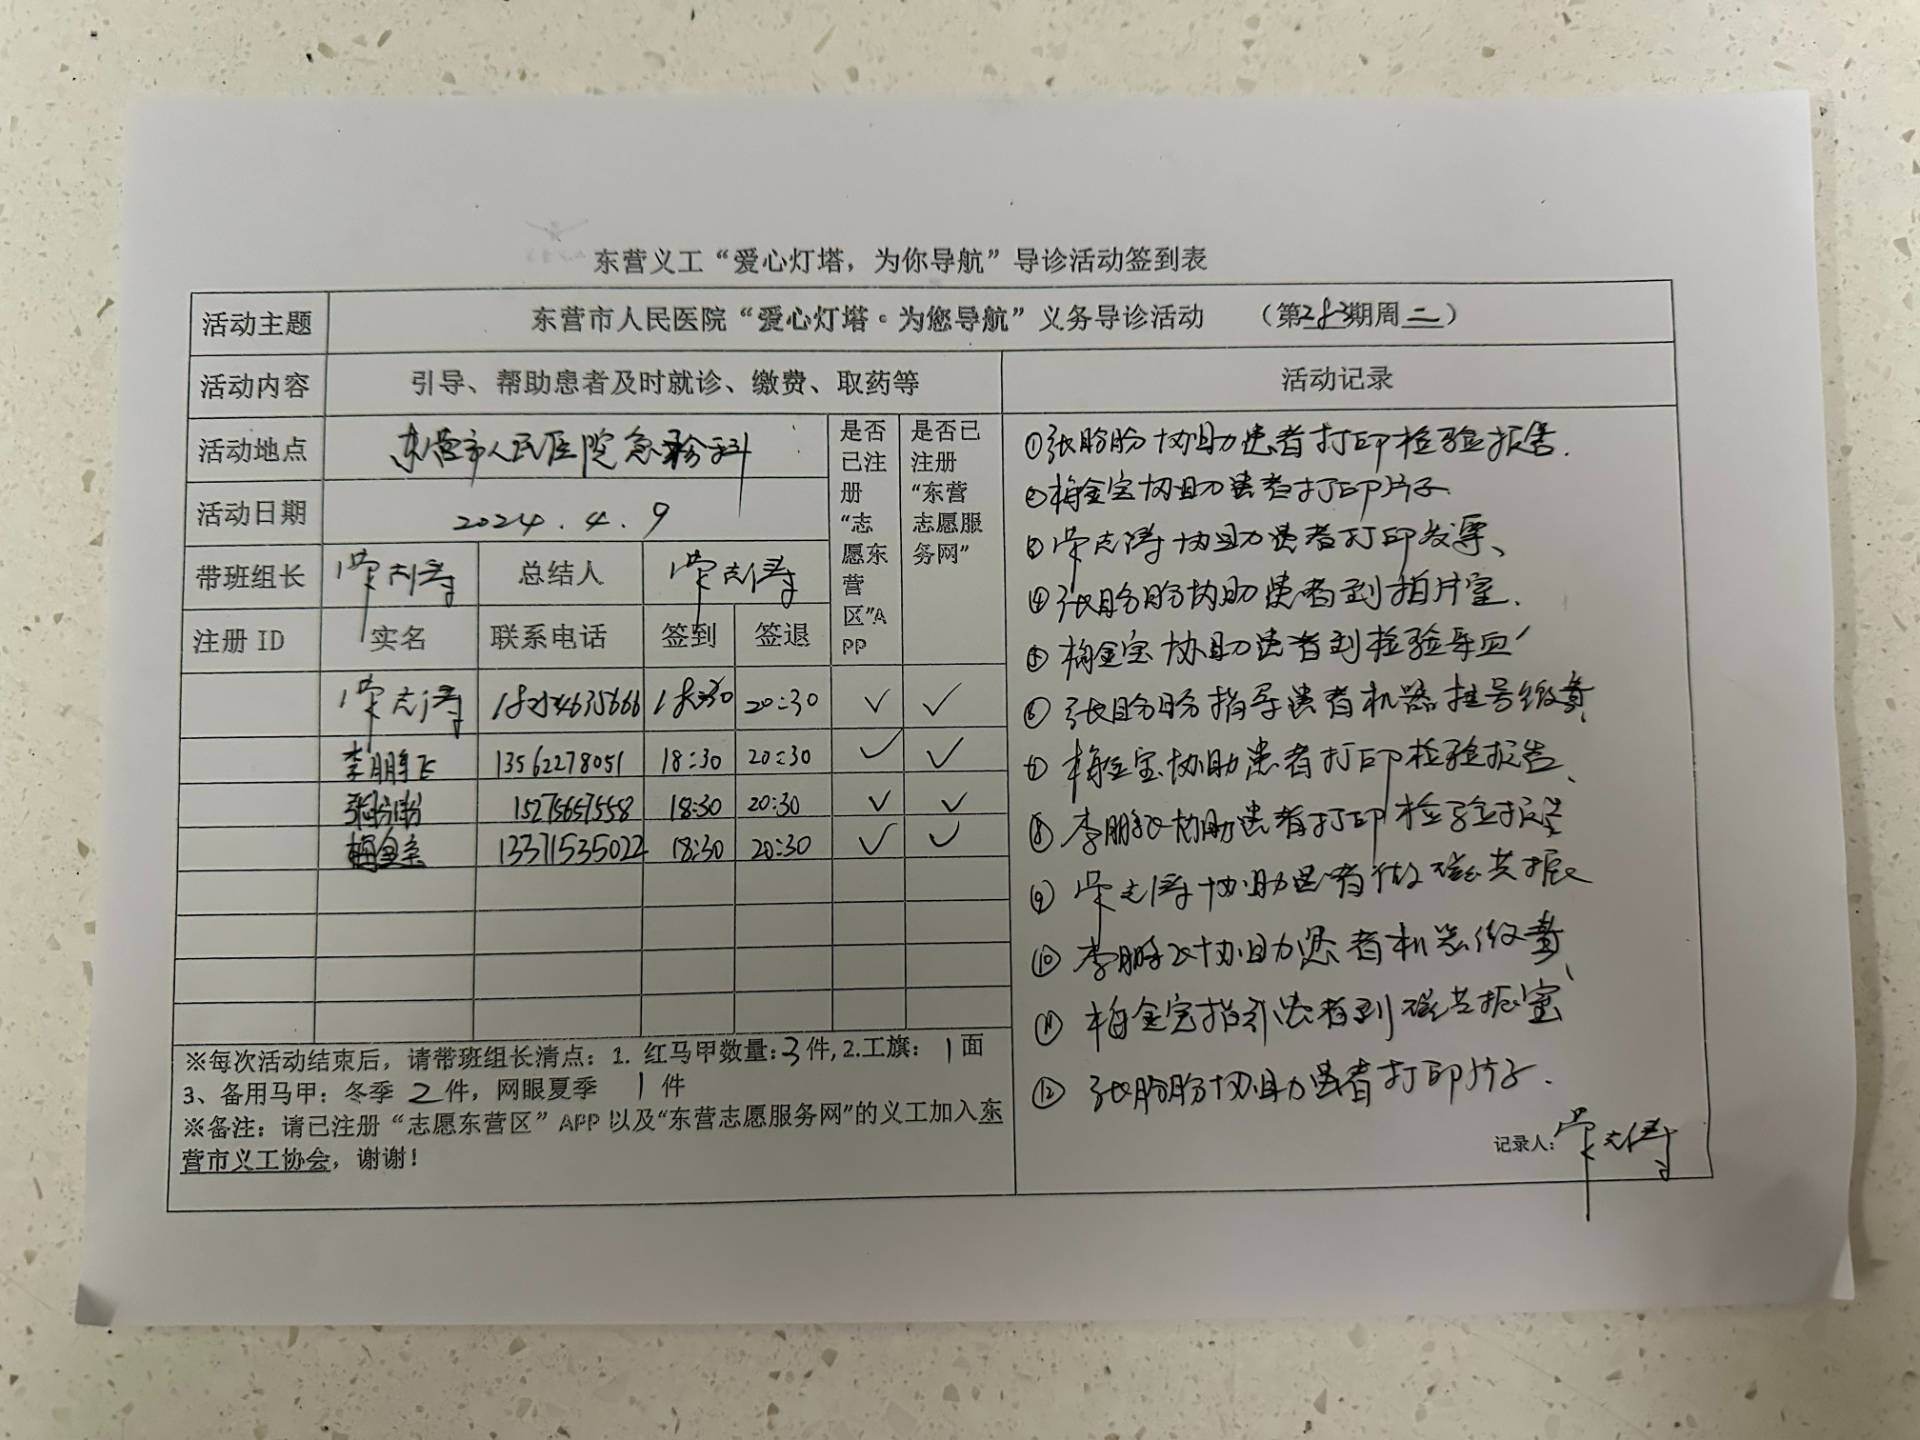 东营义工“爱心灯塔，为你导航”导诊活动签到表
活动主题 东营市人民医院“爱心灯塔·为您导航”义务导诊活动 （第283期周二）
活动内容 引导、帮助患者及时就诊、缴费、取药等 活动记录
活动地点 东营市人民医院急诊科
活动日期 2024.4.9
带班组长 荣志涛 总结人 荣志涛
是否已注册“志愿东营区”APP
是否已注册“东营志愿服务网”
注册 ID 实名 联系电话 签到 签退
荣志涛 18:30 20:30 ✓ ✓
李鹏飞 13562278051 18:30 20:30 ✓ ✓
张盼盼 15275657558 18:30 20:30 ✓ ✓
梅金宝 13371535022 18:30 20:30 ✓ ✓
※每次活动结束后，请带班组长清点：1. 红马甲数量:3件, 2.工旗： 1面
3、备用马甲：冬季 2件，网眼夏季 1件
※备注：请已注册“志愿东营区”APP 以及“东营志愿服务网”的义工加入东
营市义工协会，谢谢！
①张盼盼协助患者打印检验报告.
②梅金宝协助患者打印片子
③荣志涛协助患者打印发票、
④张盼盼协助患者到拍片室.
⑤梅金宝协助患者到检验采血
⑥张盼盼指导患者机器挂号缴费
⑦梅金宝协助患者打印检验报告、
⑧李鹏飞协助患者打印检验报告
⑨荣志涛协助患者做磁共振
⑩李鹏飞协助患者机器缴费、
⑪梅金宝指引患者到磁共振室
⑫张盼盼协助患者打印片子.
记录人:荣志涛